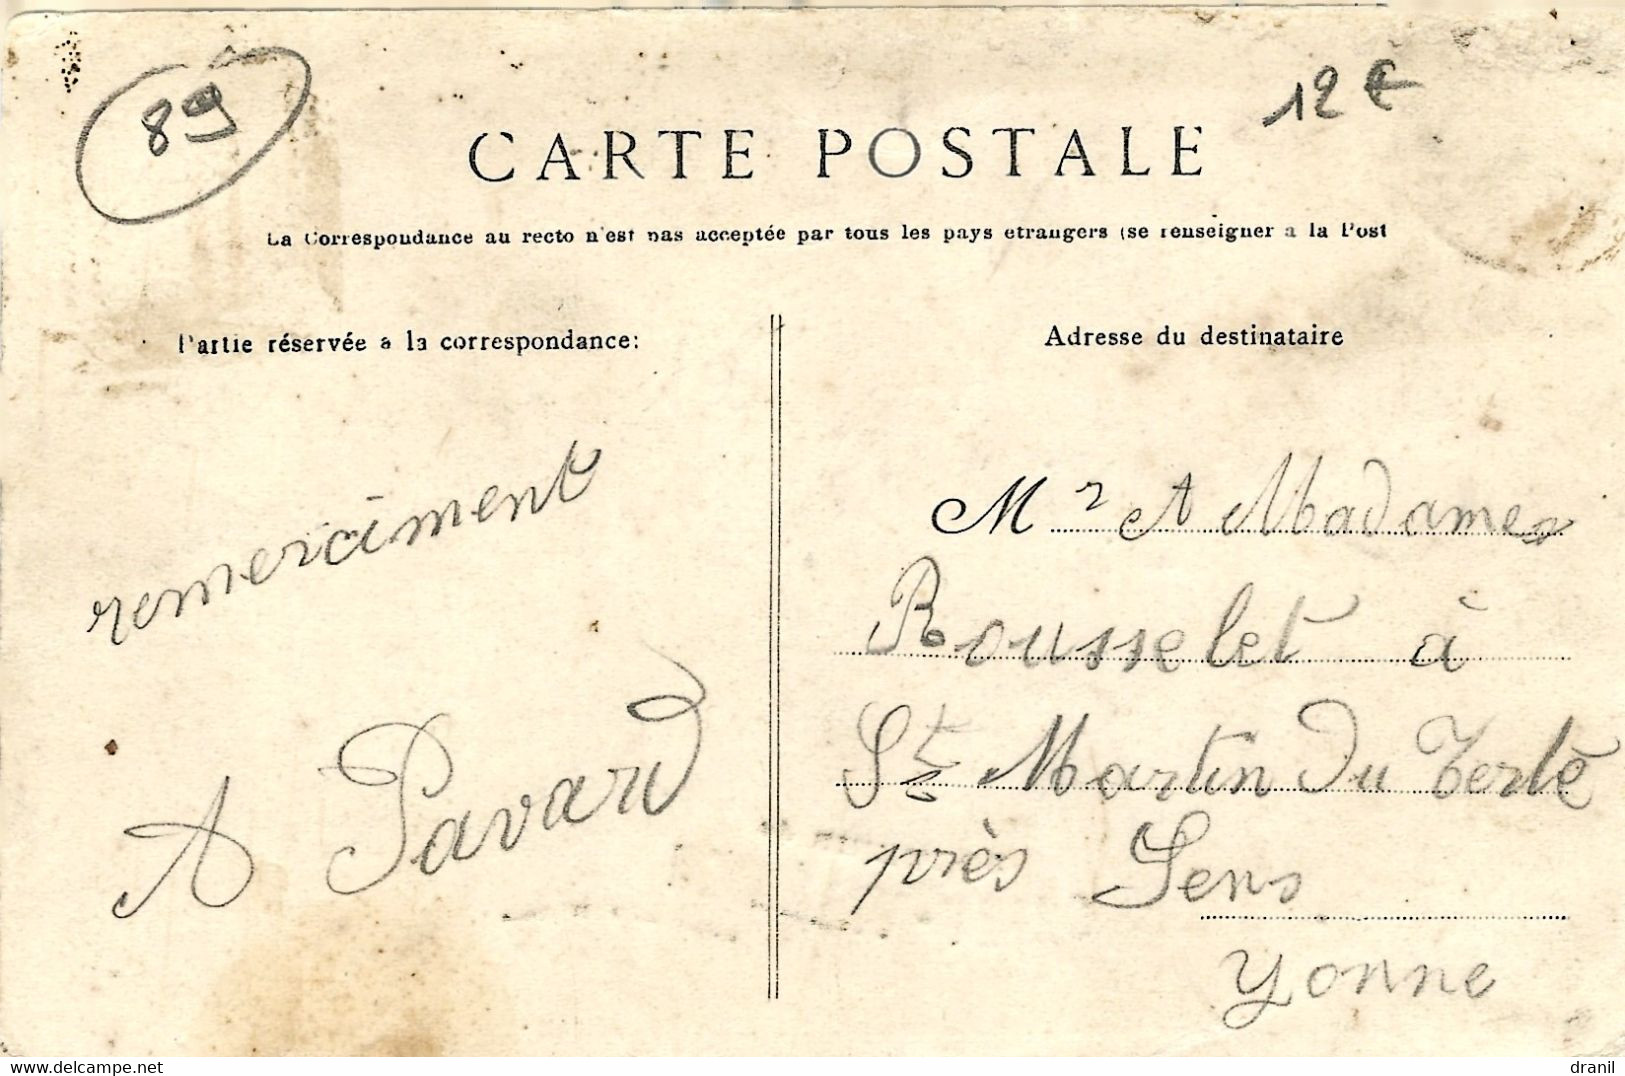 89
12 €
CARTE POSTALE
La Correspondance au recto n'est pas acceptée par tous les pays etrangers (se renseigner a la Post
Partie réservée a la correspondance:
Adresse du destinataire
remerciment
A Pavard
Mr et Madame
Rousselet à
St Martin du Terte
près Sens
Yonne
www.delcampe.net
dranil